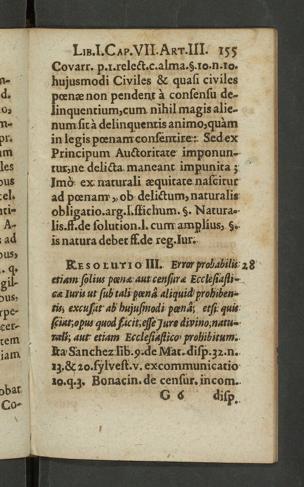 LIB.I.CAP.VII.ART.III. 155
Covarr. p.1.relect.c.alma.§.10.n.10.
hujusmodi Civiles & quasi civiles
pœnæ non pendent à consensu de-
linquentium, cum nihil magis alie-
num sit à delinquentis animo, quàm
in legis pœnam consentire: Sed ex
Principum Auctoritate imponun-
tur, ne delicta maneant impunita;
Imò ex naturali æquitate nascitur
ad pœnam, ob delictum, naturalis
obligatio. arg. l. stichum. §. Natura-
lis. ff. de solution. l. cum amplius, §.
is natura debet ff. de reg. Iur.
RESOLUTIO III. Error probabilis 28
etiam solius pœnæ aut censuræ Ecclesiasti-
cæ Iuris ut sub tali pœnâ aliquid prohiben-
tis, excusat ab hujusmodi pœnâ; etsi quis
sciat, opus quod facit, esse Jure divino, natu-
rali, aut etiam Ecclesiastico prohibitum.
Ita Sanchez lib. 9. de Mat. disp. 32. n.
13. & 20. sylvest. v. excommunicatio
10. q. 3. Bonacin. de censur. incom.
G 6 disp.